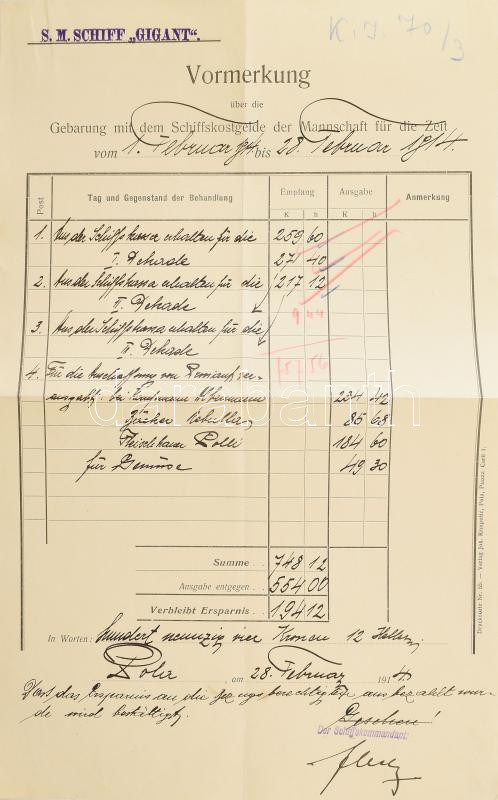 S. M. SCHIFF „GIGANT“.
K. J. 70/3
Vormerkung
über die
Gebarung mit dem Schiffskostgelde der Mannschaft für die Zeit
vom 1. Februar 1914 bis 28. Februar 1914.
Post Tag und Gegenstand der Behandlung Empfang Ausgabe Anmerkung
K h K h
1. Aus der Schiffskassa erhalten für die 259 60
I. Dekade 271 40
2. Aus der Schiffskassa erhalten für die 217 12
II. Dekade 9 44
3. Aus der Schiffskassa erhalten für die
II. Dekade 757 56
4. Für die Anschaffung von Proviant
bei Kaufmann 234 42
Bäcker 85 68
Fleischhauer Polli 184 60
für Gemüse 49 30
Summe . . 748 12
Ausgabe entgegen . 554 00
Verbleibt Ersparnis . . 194 12
In Worten: hundert neunzig vier Kronen 12 Heller.
Pola, am 28. Februar 1914
Dass das Ersparnis an die bezugsberechtigte ausbezahlt wur-
de wird bestättigt.
Gesehen!
Der Schiffskommandant:
Drucksorte Nr. 55. — Verlag Jos. Krmpotić, Pola, Piazza Carli 1.
darabanth